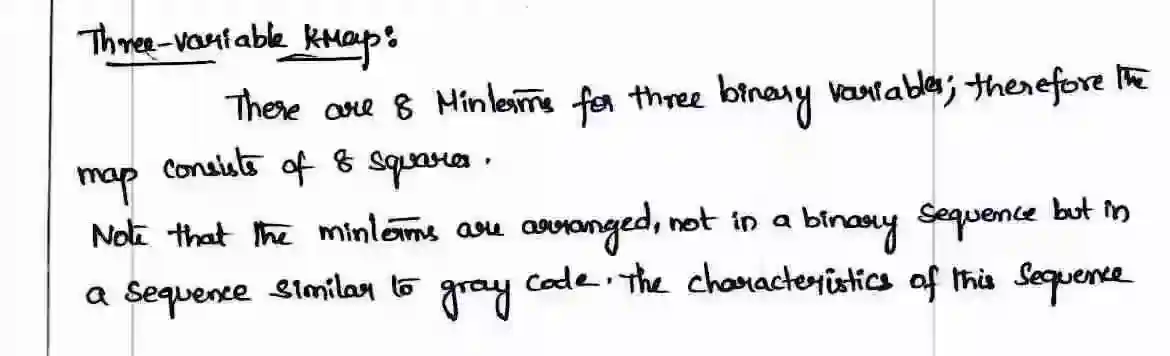 Three-variable KMap:
There are 8 Minterms for three binary variables; therefore the
map consists of 8 squares.
Note that the minterms are arranged, not in a binary sequence but in
a sequence similar to gray code. The characteristics of this sequence